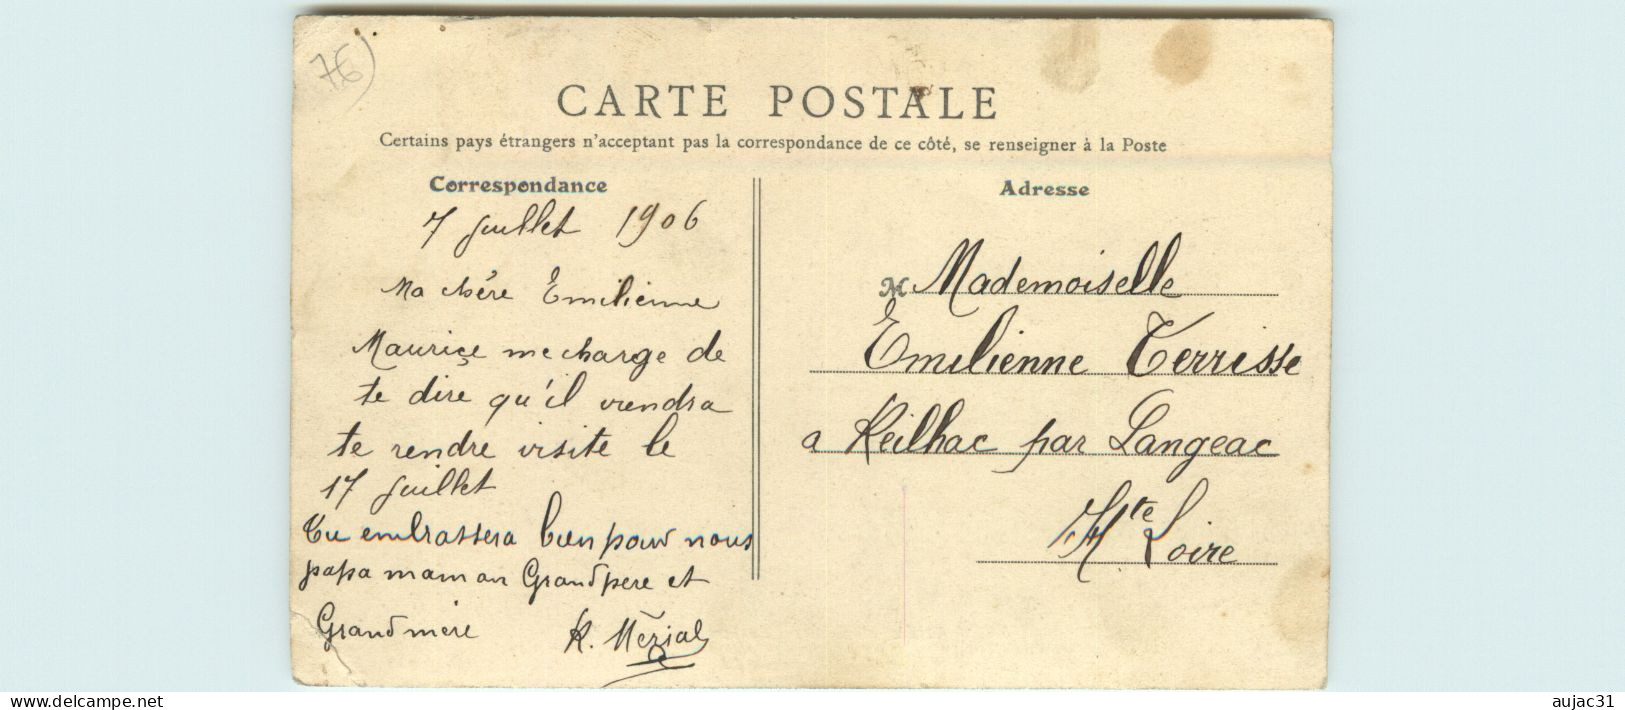 7€
CARTE POSTALE
Certains pays étrangers n'acceptant pas la correspondance de ce côté, se renseigner à la Poste
Correspondance
7 juillet 1906
Ma chère Emilienne
Maurice me charge de
te dire qu'il viendra
te rendre visite le
17 juillet
Tu embrassera bien pour nous
papa maman Grandpere et
Grandmère
Adresse
M Mademoiselle
Emilienne Terrisse
a Reilhac par Langeac
Hte Loire
www.delcampe.net
aujac31